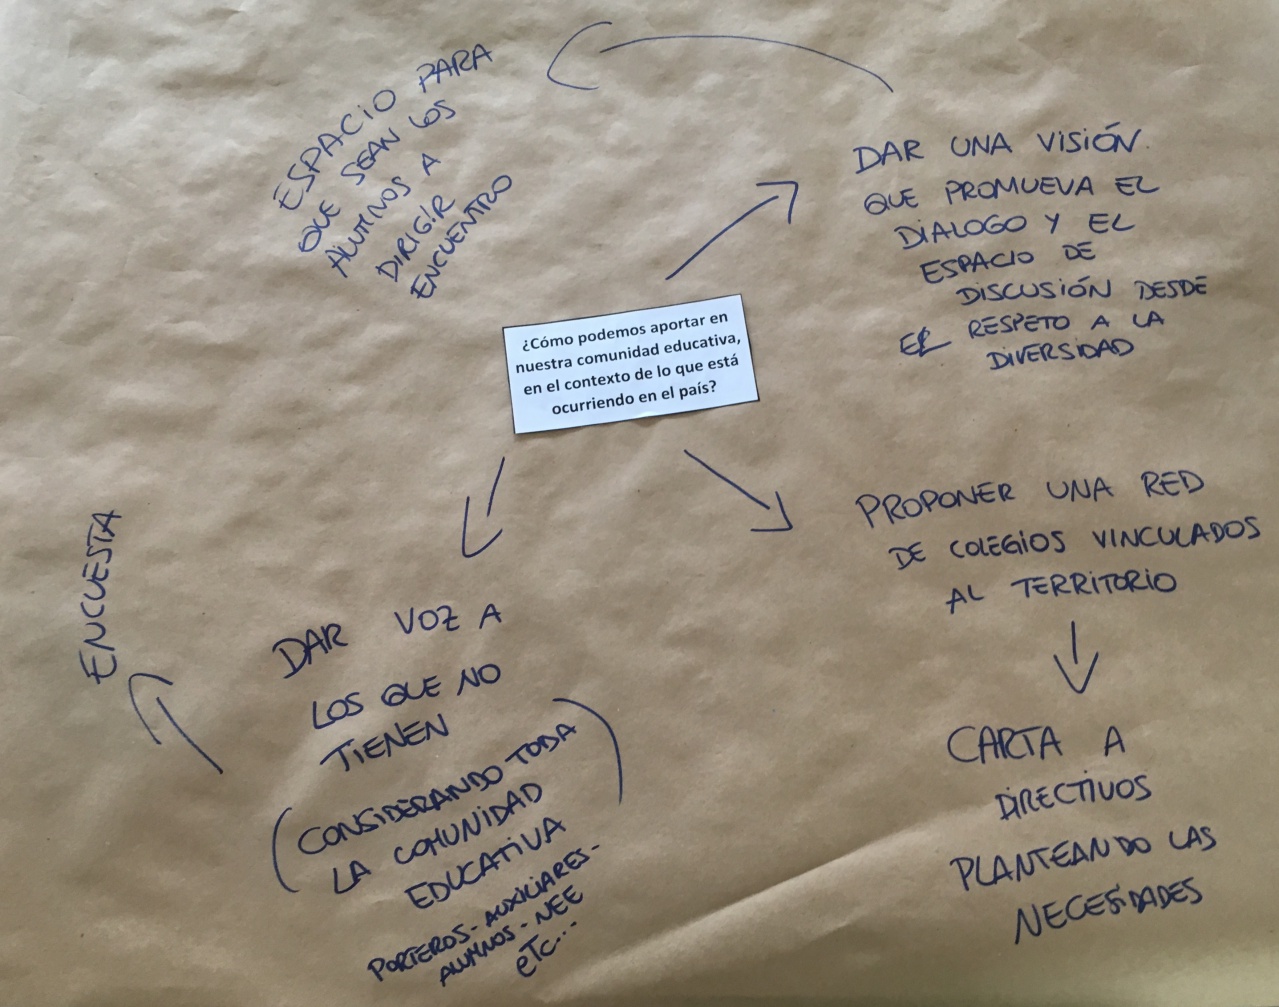 ¿Cómo podemos aportar en
nuestra comunidad educativa,
en el contexto de lo que está
ocurriendo en el país?
DAR UNA VISIÓN.
QUE PROMUEVA EL
DIALOGO Y EL
ESPACIO DE
DISCUSIÓN DESDE
EL RESPETO A LA
DIVERSIDAD
ESPACIO PARA
QUE SEAN LOS
ALUMNOS A
DIRIGIR
ENCUENTRO
PROPONER UNA RED
DE COLEGIOS VINCULADOS
AL TERRITORIO
CARTA A
DIRECTIVOS
PLANTEANDO LAS
NECESIDADES
DAR VOZ A
LOS QUE NO
TIENEN
(CONSIDERANDO TODA
LA COMUNIDAD
EDUCATIVA)
PORTEROS - AUXILIARES -
ALUMNOS - NEE
etc...
ENCUESTA